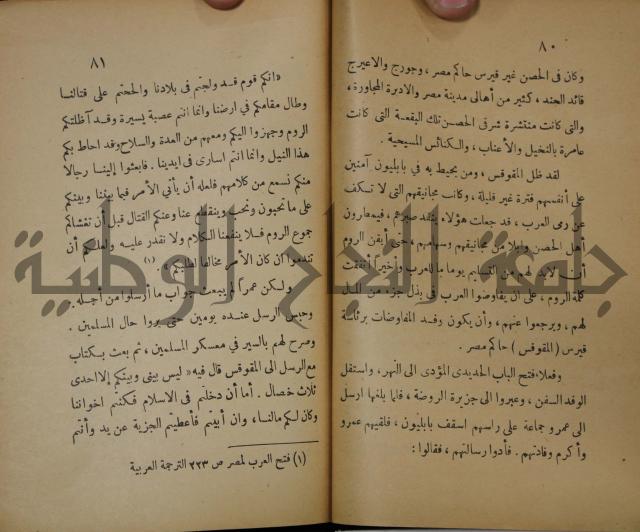 ٨٠
وكان فى الحصن غير قيرس حاكم مصر ، وجورج والاعيرج
قائد الجند ، كثير من أهالى مدينة مصر والاديرة المجاورة ،
والتى كانت منتشرة شرقى الحصن تلك البقعة التى كانت
عامرة بالنخيل والأعناب ، والكنائس المسيحية .
لقد ظل المقوقس ، ومن يحيط به في بابليون آمنين
على أنفسهم فترة غير قليلة ، وكانت مجانيقهم التى لا تكف
عن رمى العرب ، قد جعلت هؤلاء يفقد صبرهم ، فيمطرون
أهل الحصن وابلا من مجانيقهم وسهامهم ، حتى أيقن الروم
أنه لابد لهم من التسليم يوما ما للعرب وأخيرا اتفقت
كلمة الروم ، على أن يفاوضوا العرب فى بذل جزء من المال
لهم ، ويرجعوا عنهم ، وأن يكون وفد المفاوضات برئاسة
قيرس ( المقوقس ) حاكم مصر .
وفعلا فتح الباب الحديدى المؤدى الى النهر ، واستقل
الوفد السفن ، وعبروا الى جزيرة الروضة ، فلما بلغها ارسل
الى عمرو جماعة على راسهم اسقف بابليون ، فلقيهم عمرو
وأكرم وفادتهم . فأدوا رسالتهم ، فقالوا :
٨١
« انكم قوم قد ولجتم فى بلادنا والححتم على قتالنا
وطال مقامكم فى ارضنا وانما انتم عصبة يسيرة وقد أظلتكم
الروم وجهزوا اليكم ومعهم من العدة والسلاح وقد احاط بكم
هذا النيل وانما انتم اسارى فى ايدينا . فابعثوا إلينا رجالا
منكم نسمع من كلامهم فلعله أن يأتي الأمر فيما بيننا وبينكم
على ما تحبون ونحب وينقطع عنا وعنكم القتال قبل أن تغشاكم
جموع الروم فلا ينفعنا الكلام ولا نقدر عليه ولعلكم أن
تندموا ان كان الأمر مخالفا لطلبكم » . (١)
ولكن عمرا لم يبعث جواب ما أرسلوا من أجله .
وحبس الرسل عنده يومين حتى يروا حال المسلمين .
وصرح لهم بالسير في معسكر المسلمين ، ثم بعث بكتاب
مع الرسل الى المقوقس قال فيه « ليس بينى وبينكم إلا احدى
ثلاث خصال . اما أن دخلتم فى الاسلام فكنتم اخواننا
وكان لكم مالنا ، وان أبيتم فأعطيتم الجزية عن يد وأنتم
(١) فتح العرب لمصر ص ٢٢٣ الترجمة العربية
جامعة النجاح الوطنية